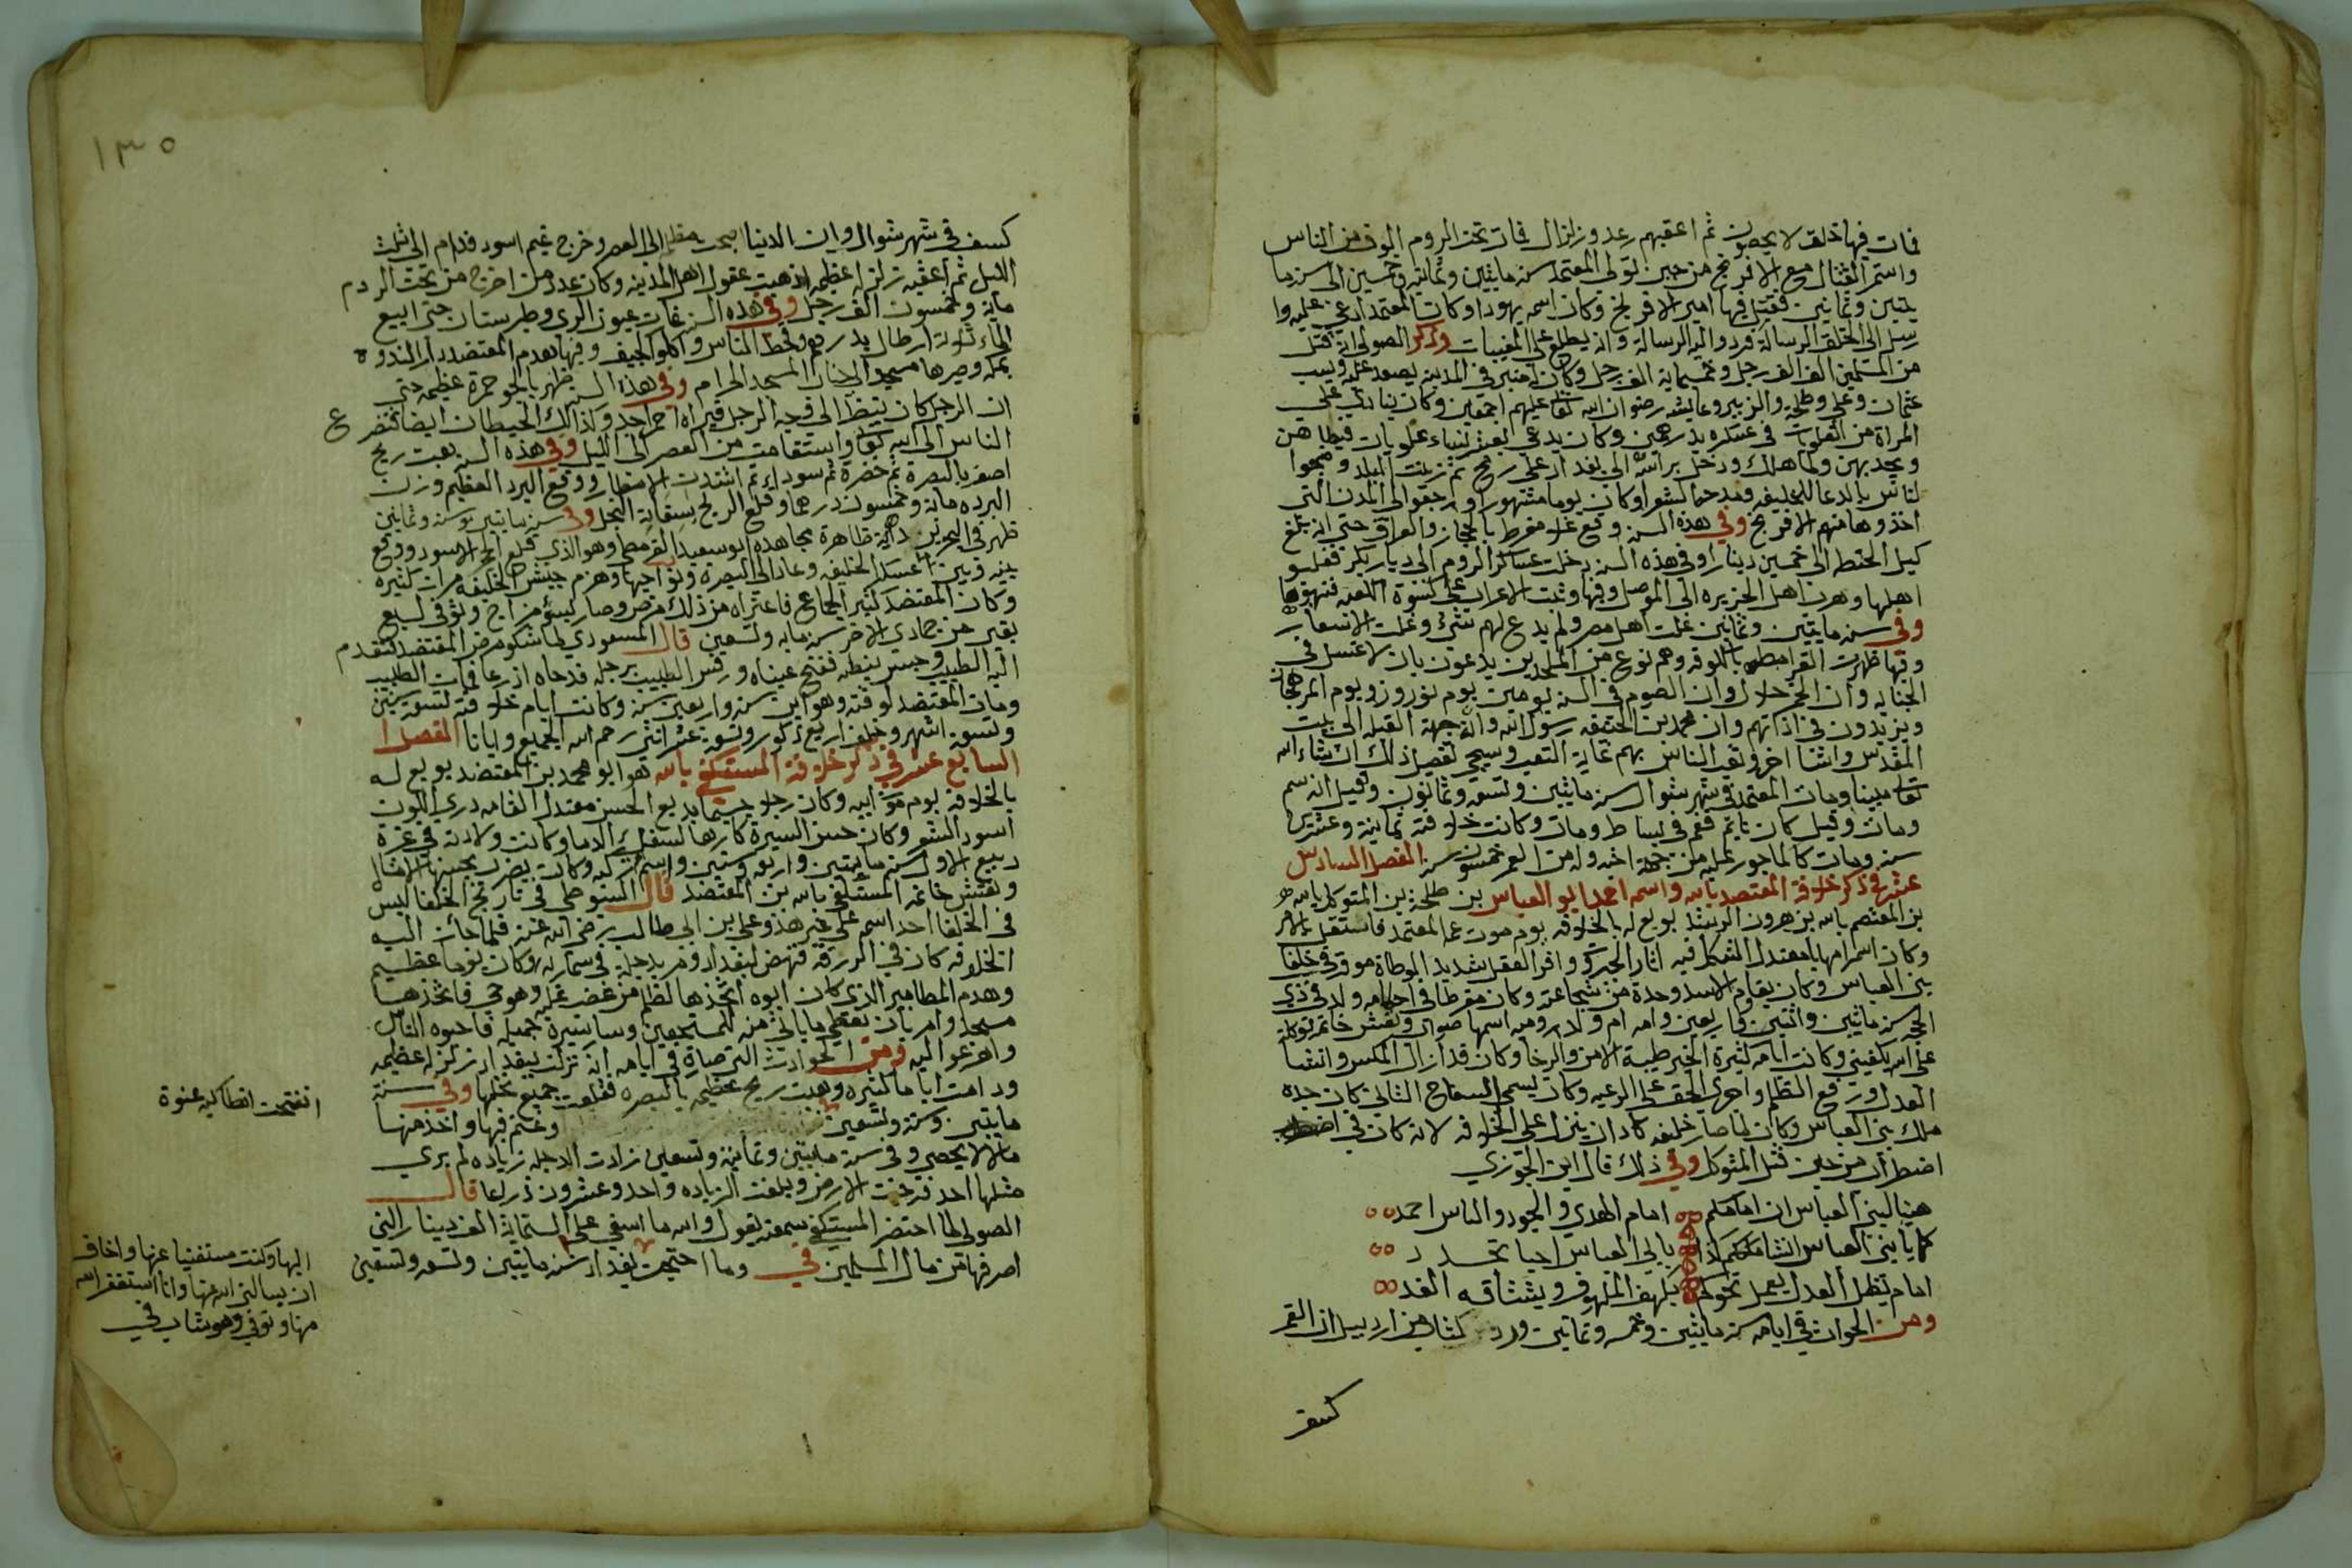 فمات فيها خلق لا يحصون ثم اعقبهم رعد وزلزال فمات تحت الروم الوف من الناس
واستمر القتال مع الافرنج من حين تولى المعتمد سنة مايتين وثمانية وخمسين الى سنة ما
يتين وثمانين فقتل فيها امير الافرنج وكان اسمه يهودا وكان المعتمد ادعى عليه وا
رسل الى الخلق الرسالة فردوا اليه الرسالة وانه يطلع على المغيبات وذكر الصولي انه قتل
من المسلمين الف الف رجل وخمسماية الف رجل وكان له منبر في المدينة يصعد عليه ويسب
عثمان وعلي وطلحة والزبير وعايشه رضوان الله تعا عليهم اجمعين وكان ينادي على
المراة من العلويات في عسكره بدرهمين وكان يدعي لبعض نساء علويات فيطاهن
ويخدمهن ولما هلك ودخل براسه الى بغداد على رمح ثم زينت البلد وضجوا
الناس بالدعا للخليفة ومدحوا الشعرا وكان يوما مشهورا ورجعوا الى المدن التي
اخذوها منهم الافرنج وفي هذه السنة وقع غلا مفرط بالحجاز والعراق حتى انه بلغ
كيل الحنطه الى خمسين دينارا وفي هذه السنه دخلت عساكر الروم الى ديار بكر فقتلو
اهلها وهرب اهل الجزيره الى الموصل وفيها وثبت الاعراب على كسوة الكعبة فنهبوها
وفي سنه مايتين وثمانين غلت اهل مصر ولم يدع لهم شئ وغلت الاسعار
وفيها ظهرت القرامطه بالكوفه وهم نوع من الملحدين يدعون بان لا غسل في
الجنابه وان الخمر حلال وان الصوم في السنه يومين يوم نوروز ويوم المرهجان
ويزيدون في اذانهم وان محمد بن الحنيفه رسول الله وانه جهة القبله الى بيت
المقدس واشيا اخر وتعب الناس بهم غاية التعب وسيجي تفصيل ذلك ان شاء الله
تعا مبينا ومات المعتمد في شهر شوال سنه مايتين وتسعه وثمانون وقيل انه سم
ومات وقيل كان نايم فغم في بساط ومات وكانت خلافته ثمانية وعشرين
سنه ومات كالمحجور عليه من جهة اخيه وله من العمر خمسون سنه الفصل السادس
عشر في ذكر خلافة المعتضد بالله واسمه احمد ابو العباس بن طلحة بن المتوكل بالله
بن المعتصم بالله بن هرون الرشيد بويع له بالخلافه يوم موت عمه المعتمد فاستقل بالامر
وكان اسمر مهابا معتدل الشكل فيه اثار الجدري وافر العقل شديد الوطاة موقر في خلفا
بني العباس وكان يقاوم الاسد وحده من شجاعته وكان مفرطا في احكامه ولد في ذي
الحجه سنه مايتين واثنين واربعين وامه ام ولد روميه اسمها صواب ونقش خاتمه توكلت
على الله يكفيني وكانت ايامه كثيرة الخير طيبة الامن والرخا وكان قد ازال المكس وانشا
العدل ورفع الظلم واجرى الحق على الرعيه وكان يسمى السفاح الثاني كان جدد
ملك بني العباس وكان لما صار خليفه كاد ان ينزل على الخلافه لانه كان في
اضطراب من حين قتل المتوكل وفي ذلك قال ابن الجوزي
هنيا لبني العباس ان امامكم امام الهدي والجود والناس احمد
كما بابي العباس انشا ملككم كذا بابي العباس احيا تحدد
امام يظل العدل يعمل نحوكم يلهف الملهوف ويشتاقه الغد
ومن الحوادث في ايامه سنه مايتين وخمسه وثمانين ورد كتاب من اردبيل ان القمر
كسف
١٣٥
كسف في شهر شوال وان الدنيا اصبحت مظلمه الى العصر وخرج غيم اسود فدام الى ثلث
الليل ثم اعقبه زلزله عظيمه اذهبت عقول اهل المدينه وكان عدد من اخرج من تحت الردم
مايه وخمسون الف رجل وفي هذه السنه غارت عيون الري وطبرستان حتى ابيع
الماء ثلاثة ارطال بدرهم وقحط الناس واكلوا الجيف وفيها هدم المعتضد دار الندوه
بمكه وصيرها مسجدا الى جنب المسجد الحرام وفي هذه السنه ظهر بالجو حمرة عظيمه حتى
ان الرجل كان ينظر الى وجه الرجل فيراه احمر وكذلك الحيطان ايضا فتضرع
الناس الى الله تعا واستقامت من العصر الى الليل وفي هذه السنه هبت ريح
اصفر بالبصرة ثم خضرة ثم سوداء ثم اشتدت الامطار ووقع البرد العظيم وزن
البرده ماية وخمسون درهما وقلع الريح بستماية النخل وفي سنه مايتين وستة وثمانين
ظهر في البحرين داهية ظاهرة مجاهده ابو سعيد القرمطي وهو الذي قلع الحجر الاسود ووقع
بينه وبين عسكر الخليفه وعاد الى البصرة ونواحيها وهزم جيش الخليفه مرات كثيره
وكان المعتضد كثير الجماع فاعتراه من ذلك مرض وصار ليبوء مزاج وتوفي لسبع
بقين من جمادى الاخر سنه مايه وتسعين قال المسعودي لما شكو مرض المعتضد فتقدم
اليه الطبيب وجس نبضه ففتح عيناه ورفس الطبيب برجله فدحاه اذرعا فمات الطبيب
ومات المعتضد لوقته وهو ابن سته واربعين سنه وكانت ايام خلافته تسعة سنين
وتسعة اشهر وخلف اربع ذكور وتسعة عشر انثى رحم الله الجميع وايانا الفصل ا
السابع عشر في ذكر خلافة المستكفي بالله هو ابو محمد بن المعتضد بويع له
بالخلافه يوم موت ابيه وكان رجلا جسيما بديع الحسن معتدل القامه دري اللون
اسود الشعر وكان حسن السيرة كارها لسفك الدما وكانت ولادته في غرة
ربيع الاول سنه مايتين واربعه وستين واسم تركيه وكانت يضرب بحسنها الامثال
ونقش خاتمه المستكفي بالله بن المعتضد قال السيوطي في تاريخ الخلفا ليس
في الخلفا احد اسمه علي غير هذا وعلي بن ابي طالب رضي الله عنه فلما جائت اليه
الخلافه كان في الررقه فنهض لبغداد ومر بدجلة في سماريه وكان يوما عظيم
وهدم المطامير الذي كان ابوه اتخذها لظلم من غضب عليه وهو حي فاتخذها
مسجدا وامر بان تعطى ما يالى منه للمستحقين وسار سيرة جميله فاحبوه الناس
وافزعوا اليه ومن الحوادث التي صارة في ايامه انه تزلزلت بغداد زلزله عظيمه
ودامت اياما كثيره وهبت ريح عظيمه بالبصره فقلعت جميع نخلها وفي سنة
مايتين وسته وتسعين وغنم فيها واخذ منها
مالا لا يحصى وفي سنة مايتين وثمانية وتسعين زادت الدجله زياده لم يرى
مثلها احد فرخت الارض وبلغت الزياده واحد وعشرون ذراعا قال
الصولي لما احتضر المستكفي سمعته يقول والله ما اسفي على الستماية الف دينار التي
اصرفها من مال المسلمين في وما احتجت بغداد سنه مايتين وتسعه وتسعين
انفتحت انطاكيه عنوة
اليها وكنت مستغنيا عنها واخاف
ان يسالني الله عنها وانا استغفر الله
منها وتوفي وهو شاب في